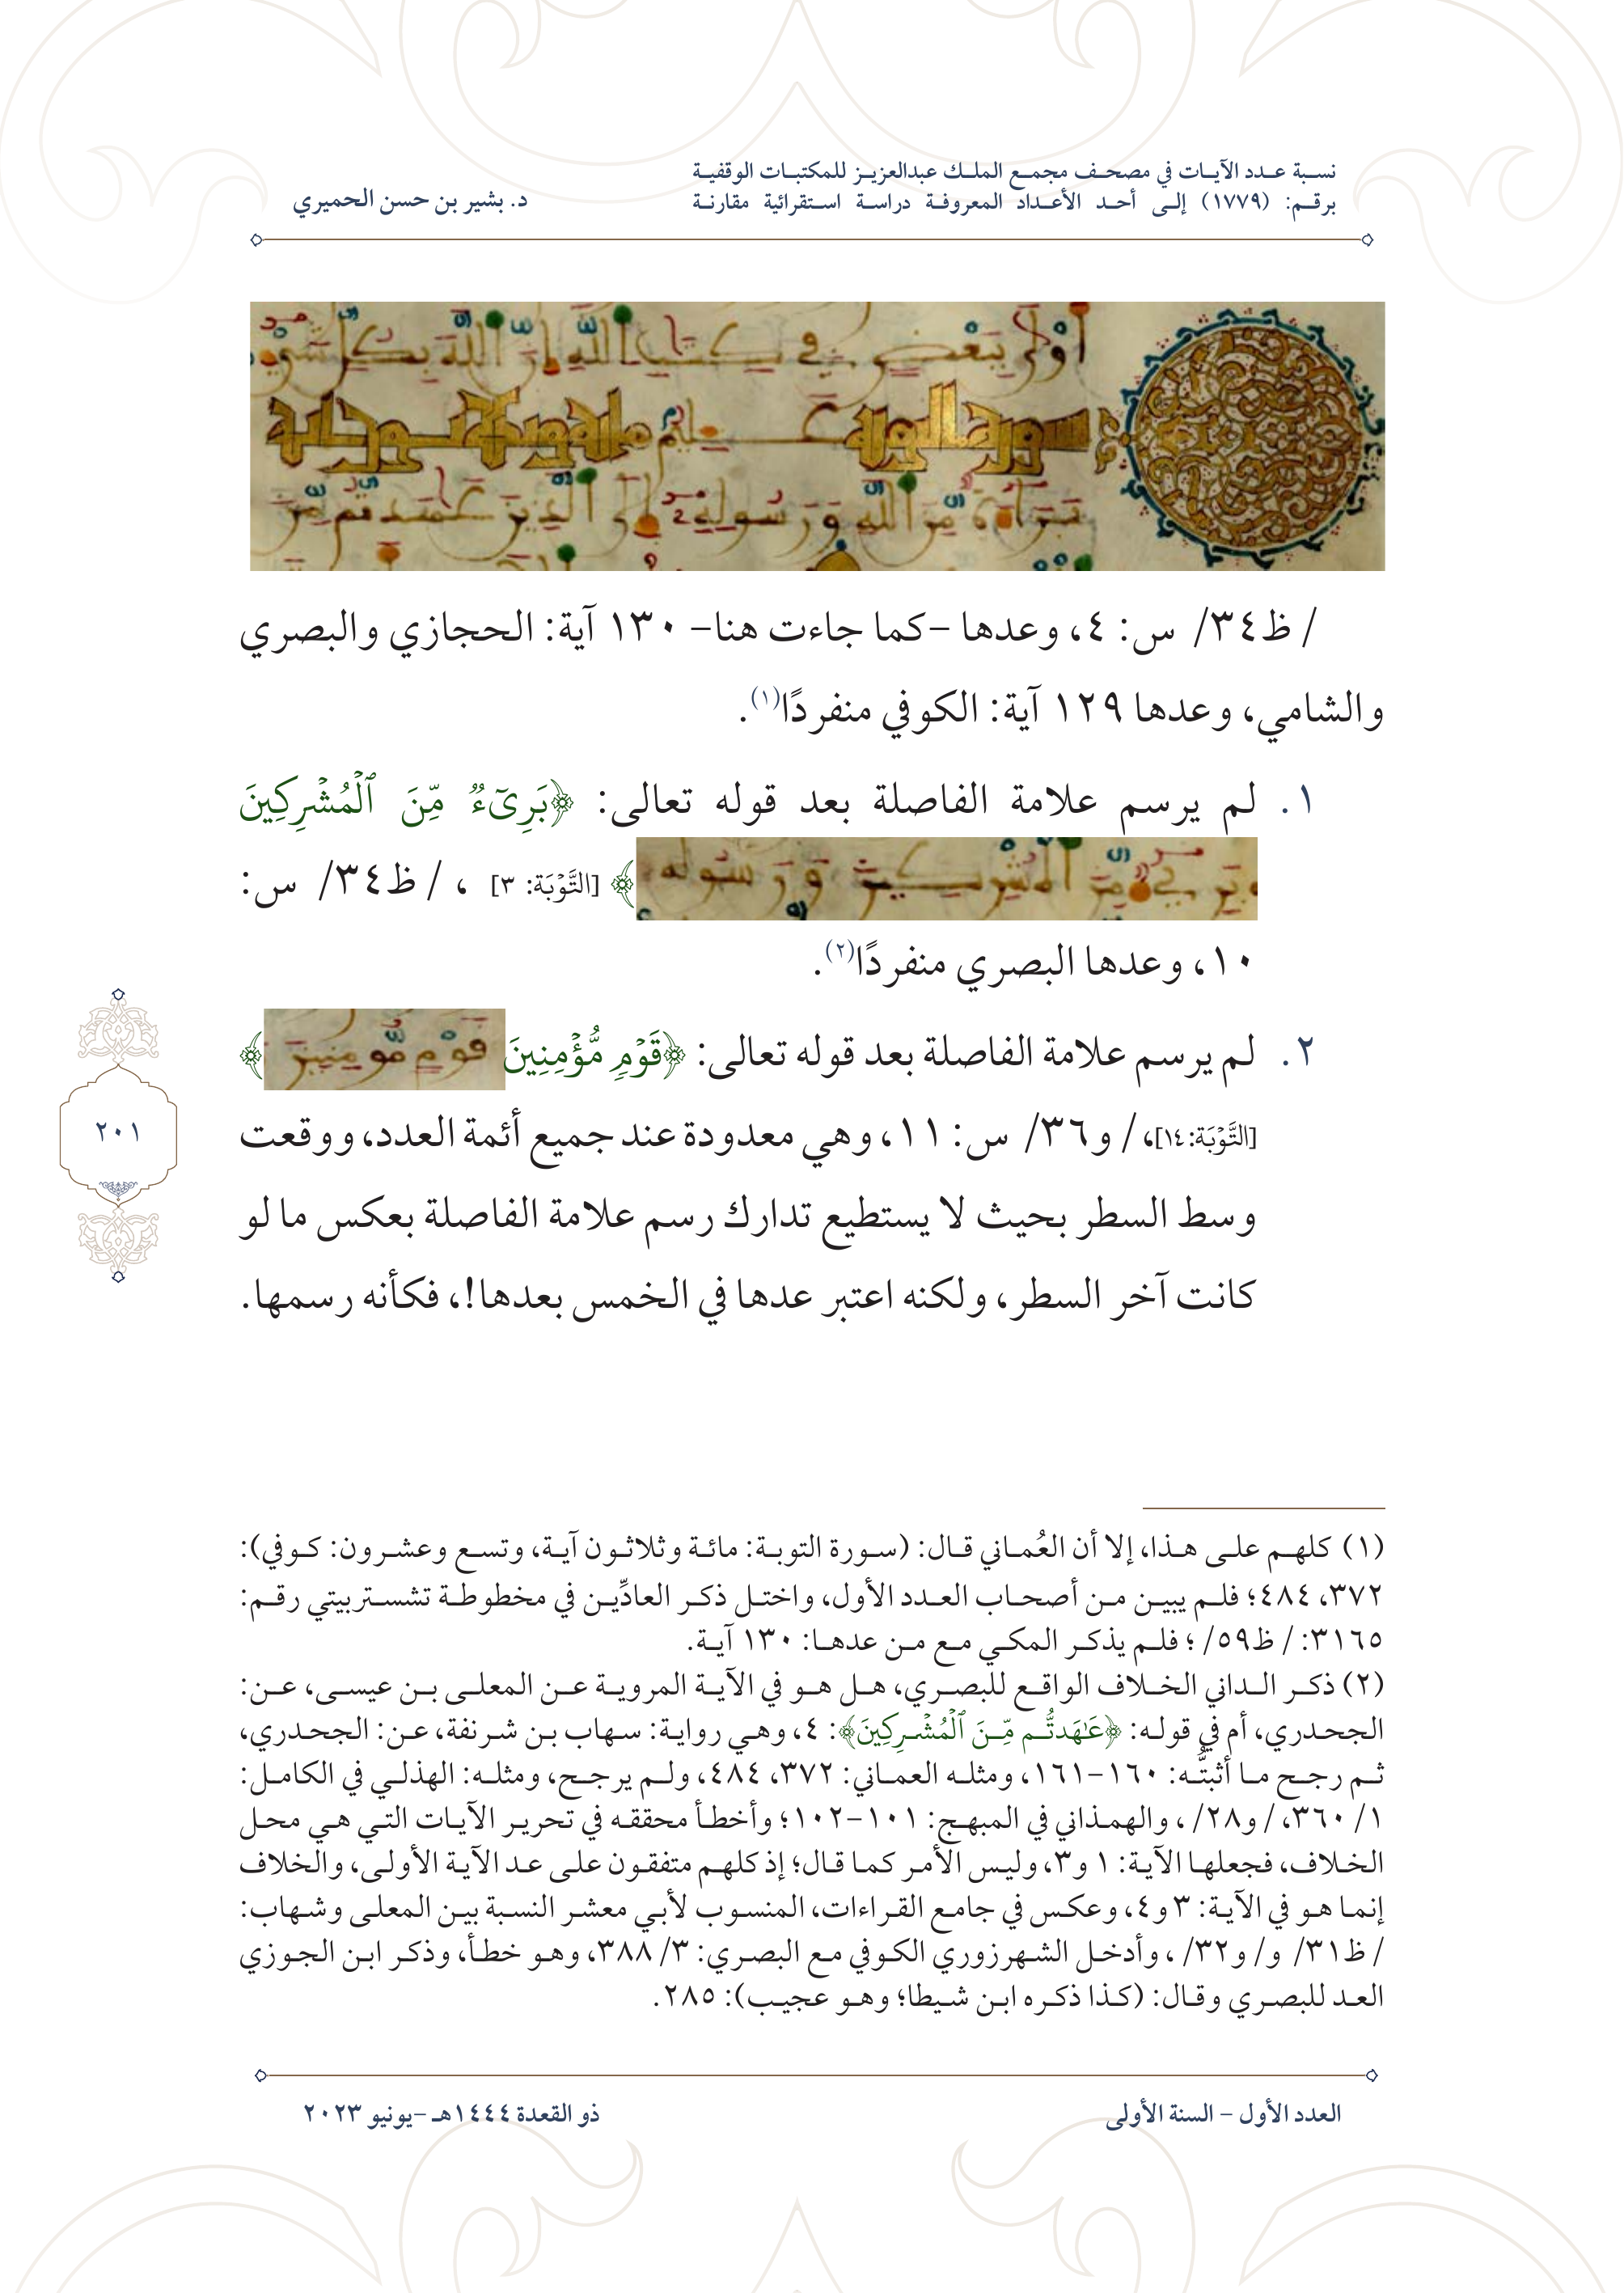 نسبة عدد الآيات في مصحف مجمع الملك عبدالعزيز للمكتبات الوقفية
برقم: (١٧٧٩) إلى أحد الأعداد المعروفة دراسة استقرائية مقارنة
د. بشير بن حسن الحميري
أولى ببعض في كتب الله إن الله بكل شيء
سورة التوبة عليم مائة وثلاثون آية
براءة من الله ورسوله إلى الذين عهدتم من
/ ظ٣٤/ س: ٤، وعدها –كما جاءت هنا– ١٣٠ آية: الحجازي والبصري
والشامي، وعدها ١٢٩ آية: الكوفي منفردًا(١).
١. لم يرسم علامة الفاصلة بعد قوله تعالى: ﴿بَرِيٓءٞ مِّنَ ٱلۡمُشۡرِكِينَ
بري من المشركين ورسوله ﴾ [التَّوۡبَة: ٣] ، / ظ٣٤/ س:
١٠، وعدها البصري منفردًا(٢).
٢. لم يرسم علامة الفاصلة بعد قوله تعالى: ﴿قَوۡمٖ مُّؤۡمِنِينَ قوم مؤمنين ﴾
[التَّوۡبَة: ١٤]، / و٣٦/ س: ١١، وهي معدودة عند جميع أئمة العدد، ووقعت
وسط السطر بحيث لا يستطيع تدارك رسم علامة الفاصلة بعكس ما لو
كانت آخر السطر، ولكنه اعتبر عدها في الخمس بعدها!، فكأنه رسمها.
٢٠١
(١) كلهم على هذا، إلا أن العُماني قال: (سورة التوبة: مائة وثلاثون آية، وتسع وعشرون: كوفي):
٣٧٢، ٤٨٤؛ فلم يبين من أصحاب العدد الأول، واختل ذكر العادِّين في مخطوطة تشستربيتي رقم:
٣١٦٥: / ظ٥٩/ ؛ فلم يذكر المكي مع من عدها: ١٣٠ آية.
(٢) ذكر الداني الخلاف الواقع للبصري، هل هو في الآية المروية عن المعلى بن عيسى، عن:
الجحدري، أم في قوله: ﴿عَٰهَدتُّم مِّنَ ٱلۡمُشۡرِكِينَ﴾: ٤، وهي رواية: سهاب بن شرنفة، عن: الجحدري،
ثم رجح ما أثبتُّه: ١٦٠–١٦١، ومثله العماني: ٣٧٢، ٤٨٤، ولم يرجح، ومثله: الهذلي في الكامل:
١/ ٣٦٠، / و٢٨/ ، والهمذاني في المبهج: ١٠١–١٠٢؛ وأخطأ محققه في تحرير الآيات التي هي محل
الخلاف، فجعلها الآية: ١ و٣، وليس الأمر كما قال؛ إذ كلهم متفقون على عد الآية الأولى، والخلاف
إنما هو في الآية: ٣ و٤، وعكس في جامع القراءات، المنسوب لأبي معشر النسبة بين المعلى وشهاب:
/ ظ٣١/ و/ و٣٢/ ، وأدخل الشهرزوري الكوفي مع البصري: ٣/ ٣٨٨، وهو خطأ، وذكر ابن الجوزي
العد للبصري وقال: (كذا ذكره ابن شيطا؛ وهو عجيب): ٢٨٥.
العدد الأول – السنة الأولى
ذو القعدة ١٤٤٤هـ –يونيو ٢٠٢٣